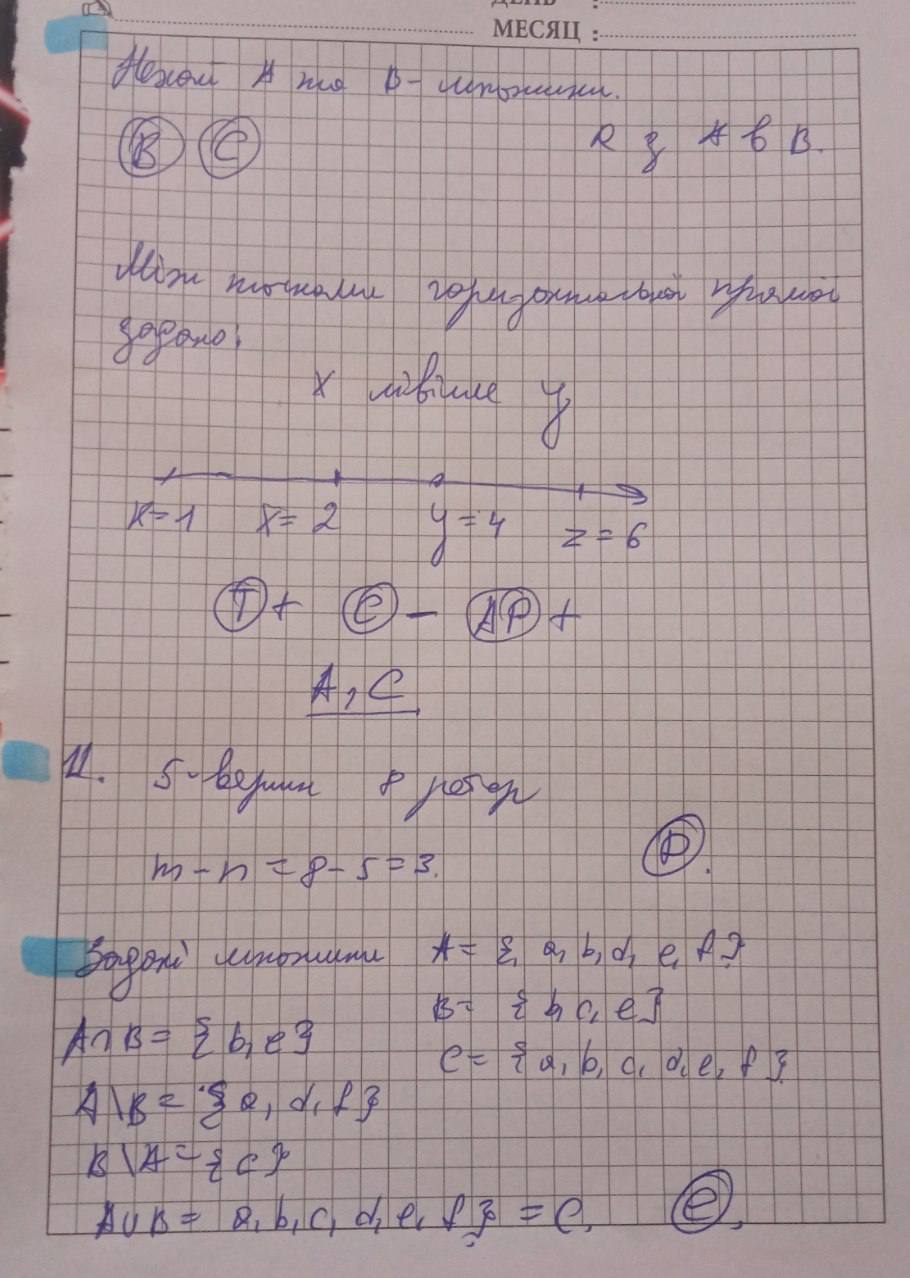 ДЕНЬ :
МЕСЯЦ :
Нехай A та B - множини.
B C R з A в B.
Між точками горизонтальної прямої
задано:
x лівіше y
x=1 x=2 y=4 z=6
T + C - AP +
A, C
11. 5-вершин 8 ребер
m-n=8-5=3.
D.
Задані множини A={a,b,d,e,f}
B={b,c,e}
A∩B={b,e}
C={a,b,c,d,e,f}
A\B={a,d,f}
B\A={c}
A∪B= a,b,c,d,e,f}=C. C.